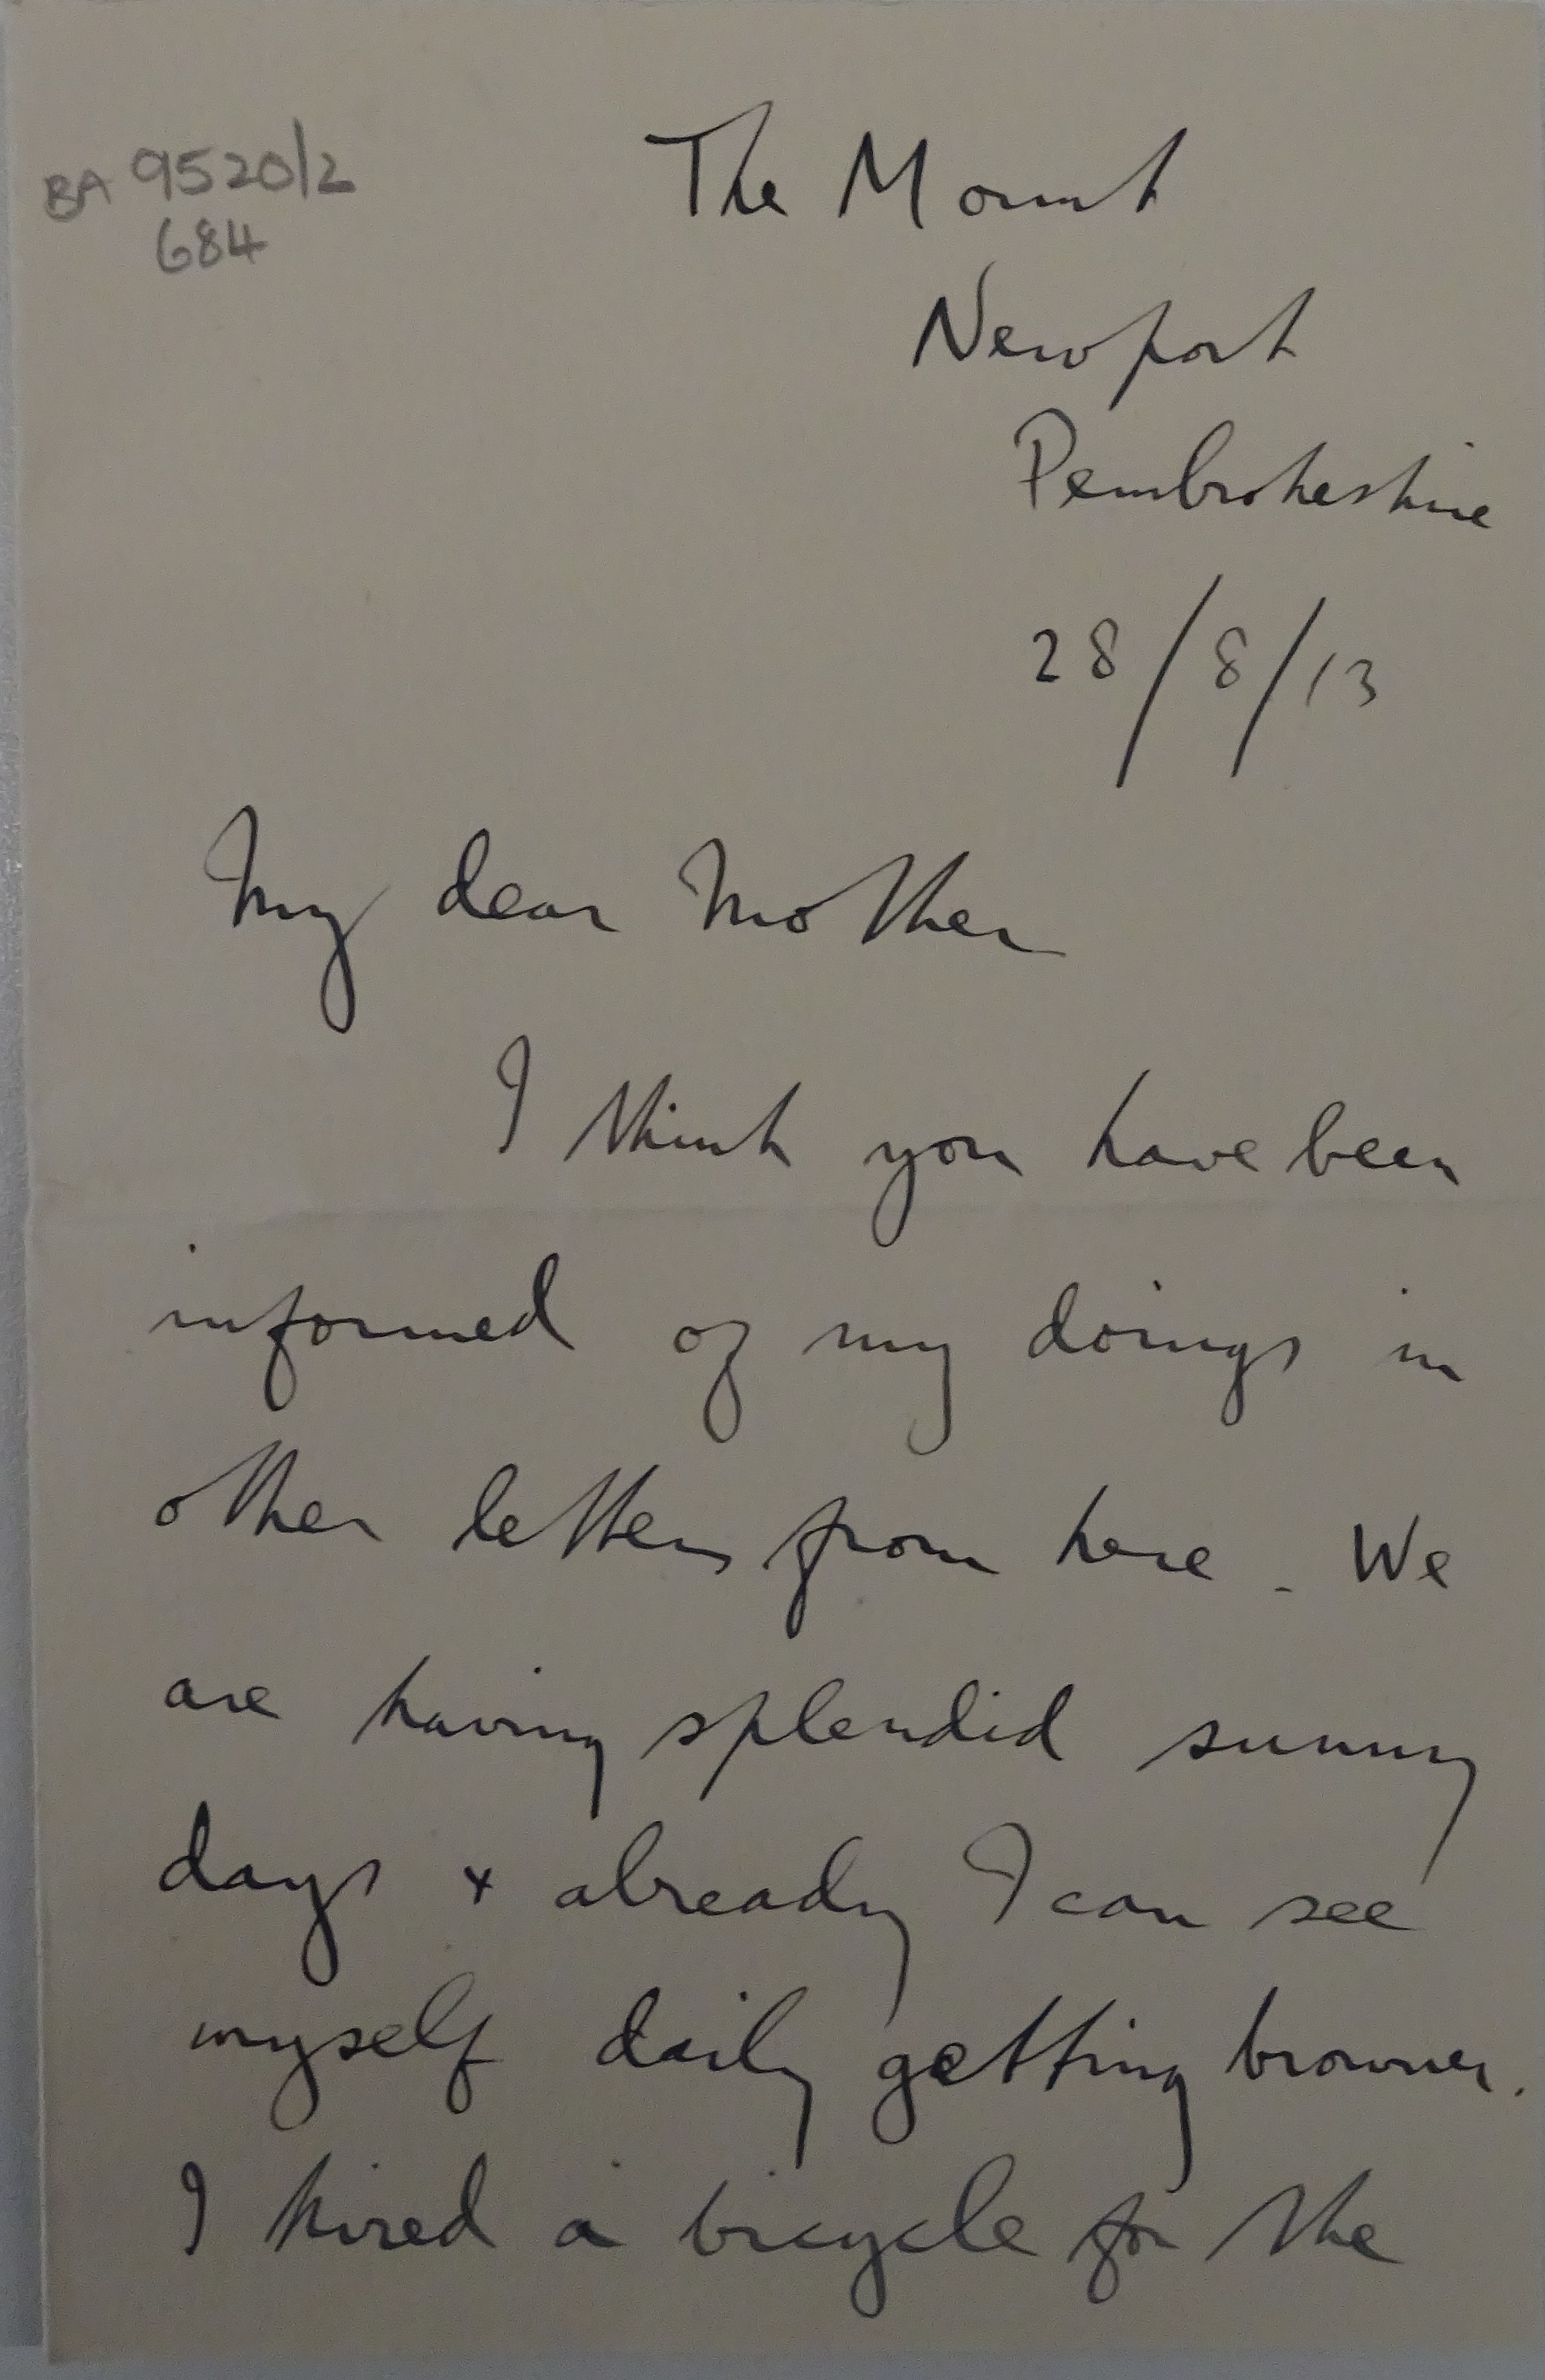 BA 9520/2
684
The Mount
Newport
Pembrokeshire
28/8/13
My dear Mother
I think you have been
informed of my doings in
other letters from here. We
are having splendid sunny
days + already I can see
myself daily getting browner.
I hired a bicycle for the